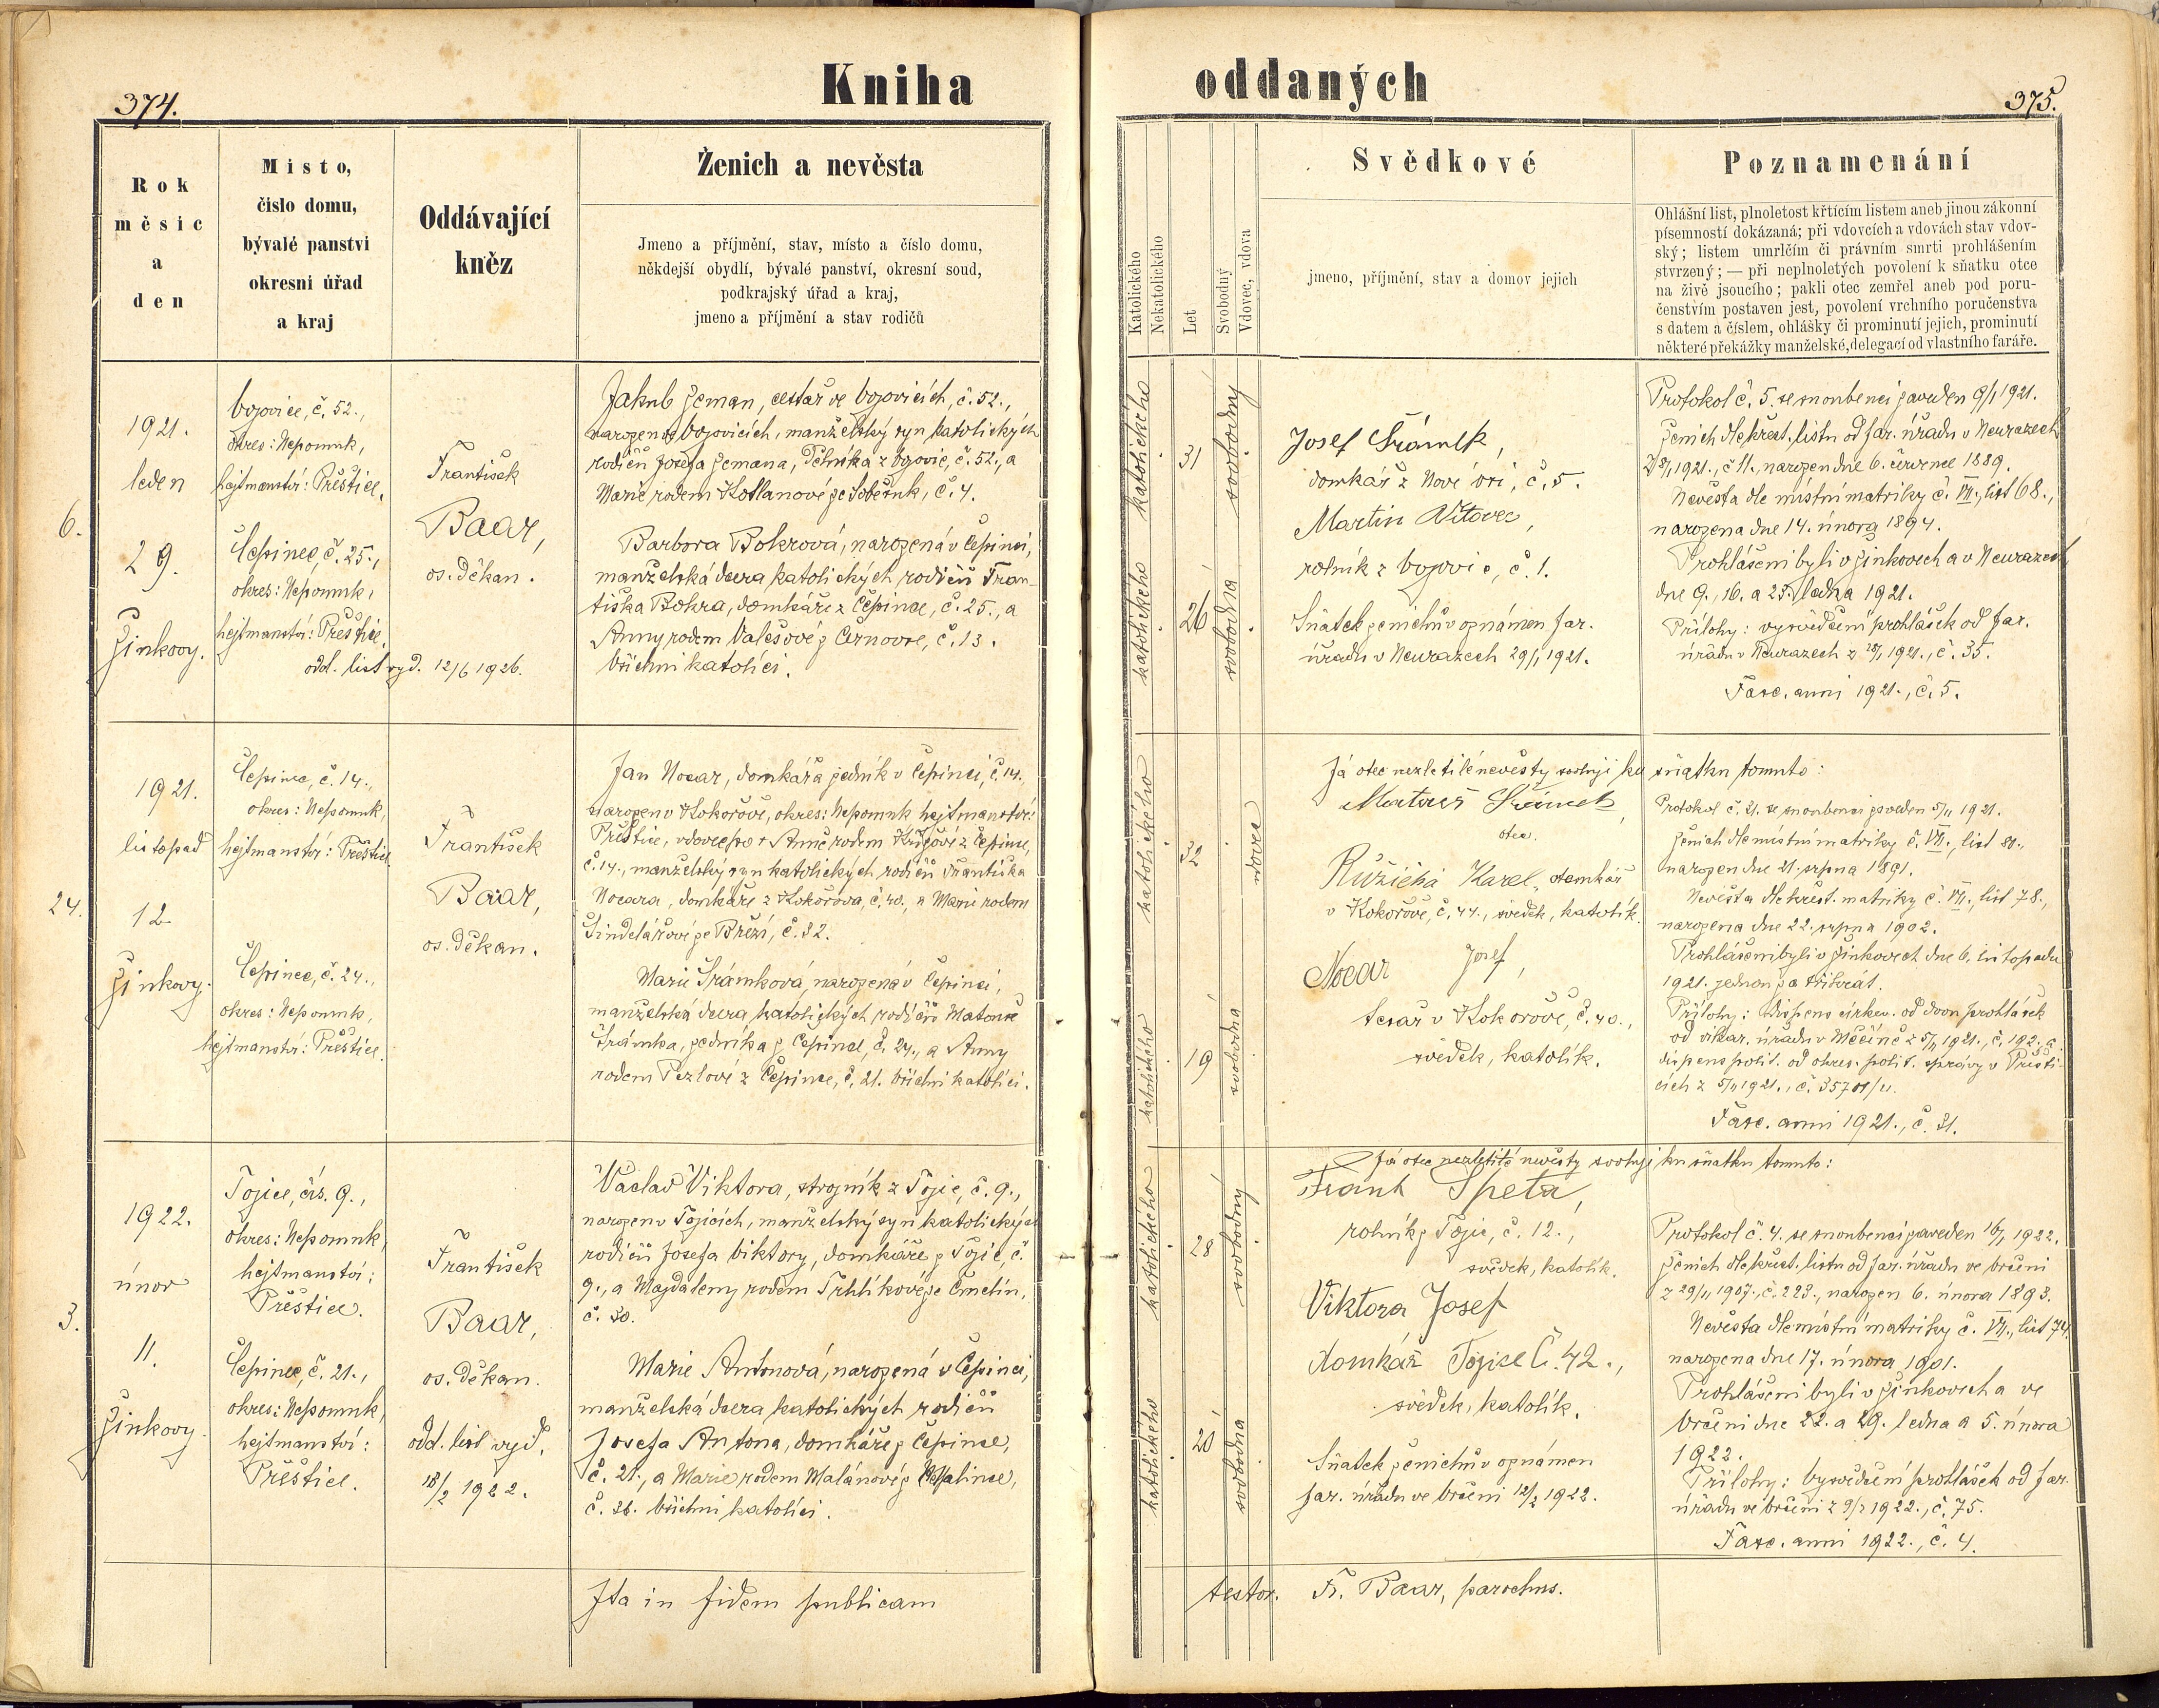 374.
Kniha
oddaných
375.
Rok
měsíc
a
den
Místo,
číslo domu,
bývalé panství
okresní úřad
a kraj
Oddávající
kněz
Ženich a nevěsta
Jmeno a příjmění, stav, místo a číslo domu,
někdejší obydlí, bývalé panství, okresní soud,
podkrajský úřad a kraj,
jmeno a příjmění a stav rodičů
Katolického
Nekatolického
Let
Svobodný
Vdovec, vdova
Svědkové
jmeno, příjmění, stav a domov jejich
Poznamenání
Ohlášní list, plnoletost křtícím listem aneb jinou zákonní
písemností dokázaná; při vdovcích a vdovách stav vdov-
ský; listem umrlčím či právním smrti prohlášením
stvrzený; — při neplnoletých povolení k sňatku otce
na živě jsoucího; pakli otec zemřel aneb pod poru-
čenstvím postaven jest, povolení vrchního poručenstva
s datem a číslem, ohlášky či prominutí jejich, prominutí
některé překážky manželské, delegací od vlastního faráře.
6.
1921.
leden
29.
Žinkovy.
Vojovice, č. 52.,
okres: Nepomuk,
hejtmanství: Přeštice.
Čepinec, č. 25.,
okres: Nepomuk,
hejtmanství: Přeštice.
odd. list vyd. 12/6 1926.
František
Baar,
os. děkan.
Jakub Zeman, cestář ve Vojovicích, č. 52.,
narozen ve Vojovicích, manželský syn katolických
rodičů Josefa Zemana, dělníka z Vojovic, č. 52., a
Marie rodem Kotlanové ze Soběsuk, č. 4.
Barbora Bokrová, narozená v Čepinci,
manželská dcera katolických rodičů Fran-
tiška Bokra, domkáře z Čepince, č. 25., a
Anny rodem Valešové z Černovse, č. 13.
Všichni katolíci.
katolického
31
svobodný
katolického
26
svobodná
Josef Šrámek,
domkář z Nové vsi, č. 5.
Martin Vítovec,
rolník z Vojovic, č. 1.
Sňatek ženichův oznámen far.
úřadu v Neurazech 29/1 1921.
Protokol č. 5. se snoubenci zaveden 9/1 1921.
Ženich dle křest. listu od far. úřadu v Neurazech
z 8/1 1921., č. 11., narozen dne 6. července 1889.
Nevěsta dle místní matriky č. VII., list 68.,
narozena dne 14. února 1894.
Prohlášeni byli v Žinkovech a v Neurazech
dne 9., 16. a 23. ledna 1921.
Přílohy: vysvědčení prohlášek od far.
úřadu v Neurazech z 28/1 1921., č. 35.
Fasc. anni 1921., č. 5.
24.
1921.
listopad
12.
Žinkovy.
Čepinec, č. 14.,
okres: Nepomuk,
hejtmanství: Přeštice
Čepinec, č. 24.,
okres: Nepomuk,
hejtmanství: Přeštice.
František
Baar,
os. děkan.
Jan Nocar, domkář a zedník v Čepinci, č. 14.,
narozen v Kokořově, okres: Nepomuk hejtmanství:
Přeštice, vdovec po † Anně rodem z Čepince,
č. 14., manželský syn katolických rodičů Františka
Nocara, domkáře z Kokořova, č. 40., a Marie rodem
Šindelářové ze Březí, č. 32.
Marie Šrámková, narozená v Čepinci,
manželská dcera katolických rodičů Matouše
Šrámka, zedníka z Čepince, č. 24., a Anny
rodem Pezlové z Čepince, č. 21. Všichni katolíci.
katolického
32
vdovec
katolického
19
svobodná
Já otec nezletilé nevěsty svoluji ku sňatku tomuto:
Matouš Šrámek,
otec.
Růžička Karel, domkář
v Kokořově, č. 44., svědek, katolík.
Nocar Josef,
tesař v Kokořově, č. 40.,
svědek, katolík.
Protokol č. 21. se snoubenci zaveden 5/11 1921.
Ženich dle místní matriky č. VII., list 81.,
narozen dne 21. srpna 1891.
Nevěsta dle křest. matriky č. VII., list 78.,
narozena dne 22. srpna 1902.
Prohlášeni byli v Žinkovech dne 6. listopadu
1921. jednou za třikrát.
Přílohy: Dispens církev. od dvou prohlášek
od vikar. úřadu v Měčíně z 5/11 1921., č. 192. a
dispens polit. od okres. polit. správy v Přešti-
cích z 5/11 1921., č. 35701/u.
Fasc. anni 1921., č. 31.
3.
1922.
únor
11.
Žinkovy
Tojice, čís. 9.,
okres: Nepomuk,
hejtmanství:
Přeštice.
Čepinec, č. 21.,
okres: Nepomuk,
hejtmanství:
Přeštice.
František
Baar,
os. děkan.
odd. list vyd.
18/2 1922.
Václav Viktora, strojník z Tojic, č. 9.,
narozen v Tojicích, manželský syn katolických
rodičů Josefa Viktory, domkáře z Tojic, č.
9., a Magdaleny rodem Trhlíkové ze Čmelín,
č. 30.
Marie Antonová, narozená v Čepinci,
manželská dcera katolických rodičů
Josefa Antona, domkáře z Čepince,
č. 21., a Marie rodem Malánové z
č. 36. Všichni katolíci.
katolického
28
svobodný
katolického
20
svobodná
Já otec nezletilé nevěsty svoluji ku sňatku tomuto:
Frant Špeta,
rolník z Tojic, č. 12.,
svědek, katolík.
Viktora Josef
domkář Tojice Č. 42.,
svědek, katolík.
Sňatek ženichův oznámen
far. úřadu ve Vrčeni 12/2 1922.
Protokol č. 4. se snoubenci zaveden 16/1 1922.
Ženich dle křest. listu od far. úřadu ve Vrčeni
z 29/11 1907., č. 223., narozen 6. února 1893.
Nevěsta dle místní matriky č. VII., list 74.
narozena dne 17. února 1901.
Prohlášeni byli v Žinkovech a ve
Vrčeni dne 22. a 29. ledna a 5. února
1922.
Přílohy: Vysvědčení prohlášek od far.
úřadu ve Vrčeni z 9/2 1922., č. 75.
Fasc. anni 1922., č. 4.
Ita in fidem publicam
testor. Fr. Baar, parochus.